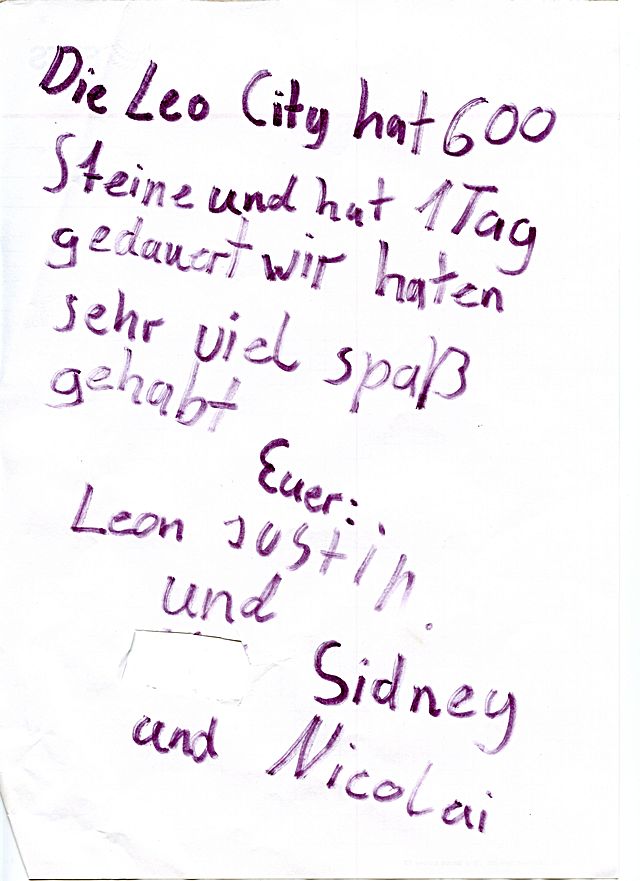 Die Leo City hat 600
Steine und hat 1 Tag
gedauert wir haten
sehr viel spaß
gehabt
Euer:
Leon Justin.
und
Sidney
und Nicolai